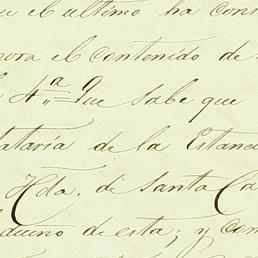 e el ultimo ha con
el contenido de
4ª Que sabe que
ataria de la Estan
Hda. de Santa Ca
dueno de esta; y con